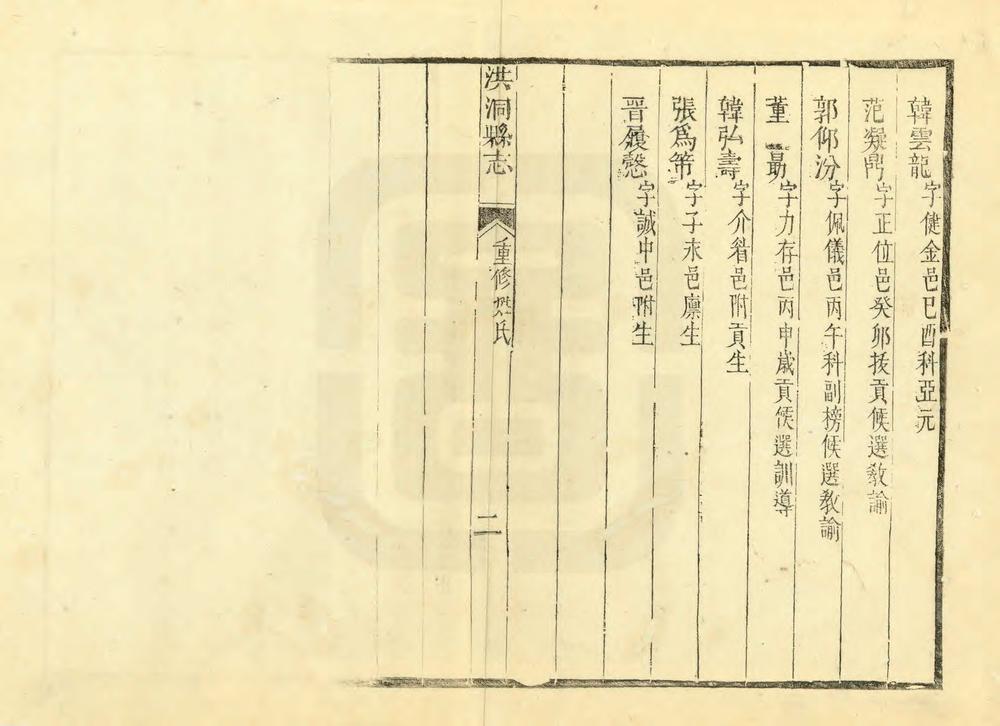 韓雲龍字健金邑己酉科亞元
范凝鼎字正位邑癸卯拔貢候選教諭
郭仰汾字佩儀邑丙午科副榜候選教諭
董勗字力存邑丙申歲貢候選訓導
韓弘壽字介眉邑附貢生
張爲第字子朱邑廩生
晉履愨字誠中邑附生
洪洞縣志
重修姓氏
二